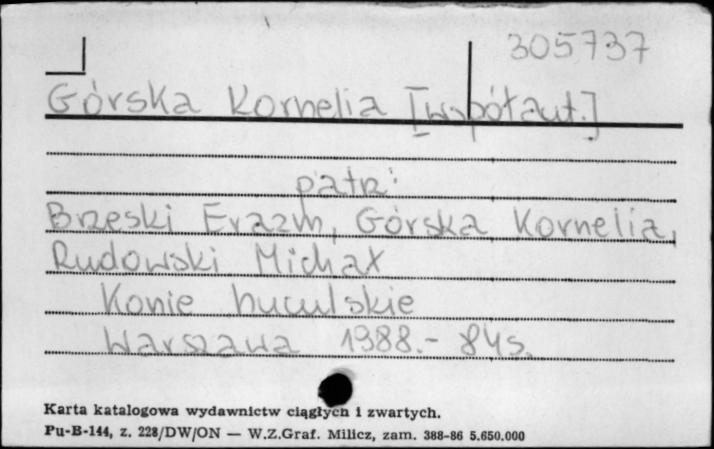 305737
Górska Kornelia [współaut.]
patrz:
Brzeski Erazm, Górska Kornelia,
Rudowski Michał
Konie huculskie
Warszawa 1988.- 84s.
Karta katalogowa wydawnictw ciągłych i zwartych.
Pu-B-144, z. 228/DW/ON — W.Z.Graf. Milicz, zam. 388-86 5.650.000